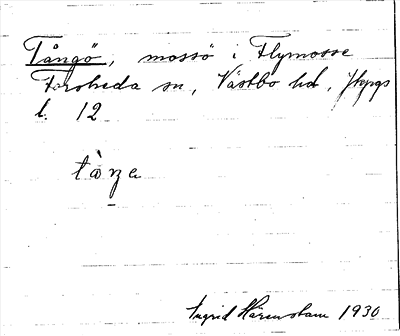 Tångö, mossö i Flymosse
Forsheda sn, Västbo hd, Jkpgs
l. 12
tàṉa
Ingrid Härenstam 1930